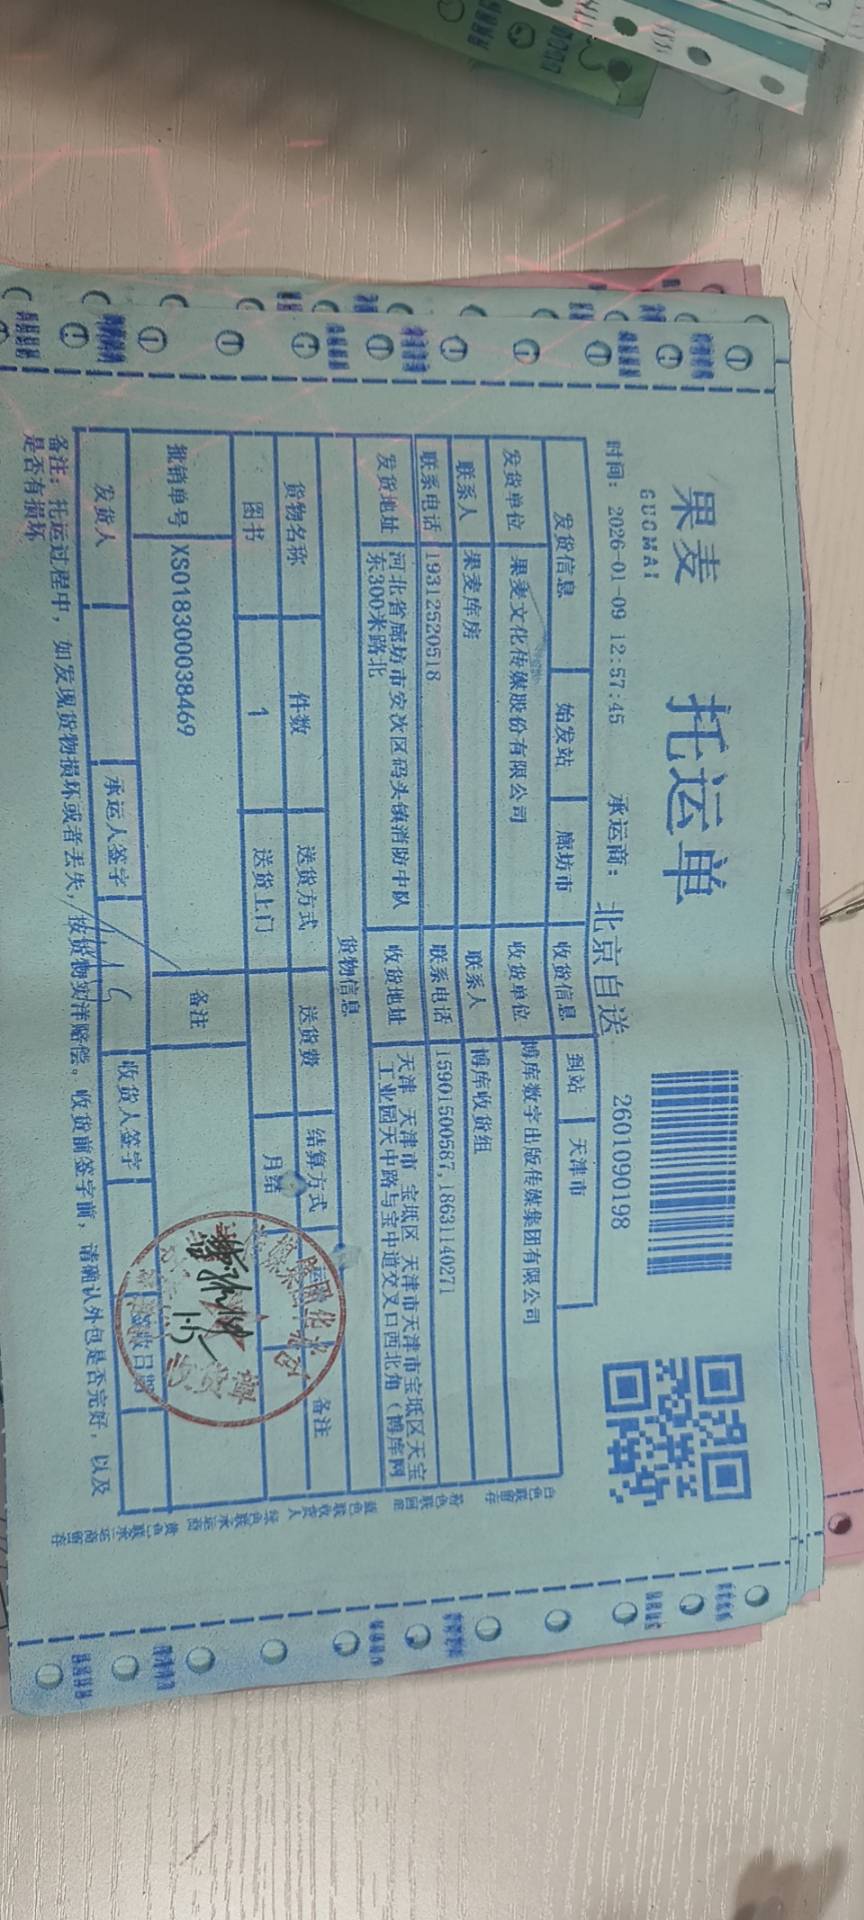 果麦
GUOMAI
托运单
2601090198
时间: 2026-01-09 12:57:45 承运商: 北京自送
发货信息 始发站 廊坊市 收货信息 到站 天津市
发货单位 果麦文化传媒股份有限公司 收货单位 博库数字出版传媒集团有限公司
联系人 果麦库房 联系人 博库收货组
联系电话 19312520518 联系电话 15901500587,18631140271
发货地址 河北省廊坊市安次区码头镇消防中队东300米路北 收货地址 天津 天津市 宝坻区 天津市天津市宝坻区天宝工业园天中路与宝中道交叉口西北角（博库网
货物信息
货物名称 件数 送货方式 送货费 结算方式 备注
图书 1 送货上门 月结
报销单号 XS018300038469 备注
发货人 承运人签字 收货人签字 签收日期
1.15
备注: 托运过程中, 如发现货物损坏或者丢失, 按货物实洋赔偿。收货前签字前, 请确认外包是否完好, 以及
是否有损坏
白色联留存 粉色联回单 蓝色联收货人 绿色联承运商 黄色联承运商留存